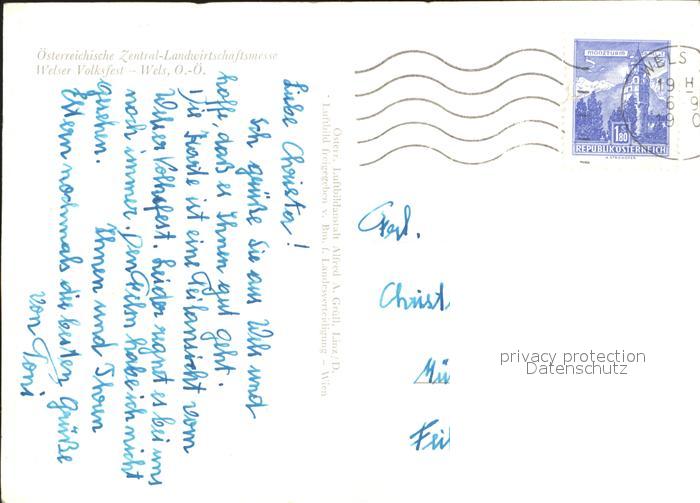 Österreichische Zentral-Landwirtschaftsmesse
Welser Volksfest – Wels, O.-Ö.
Liebe Christa!
Ich grüße Sie aus Wels und
hoffe, daß es Ihnen gut geht.
Die Karte ist eine Teilansicht vom
Welser Volksfest. Leider regnet es bei uns
noch immer. Den Film habe ich nicht
gesehen. Ihnen und Ihren
Eltern nochmals die besten Grüße
von Toni
Österr. Luftbildanstalt Alfred A. Grüll, Linz/D.
Luftbild freigegeben v. Bm. f. Landesverteidigung – Wien
MÜNZTURM
1.80
REPUBLIK ÖSTERREICH
WELS
Frl.
Christ
Mü
Fei
privacy protection
Datenschutz